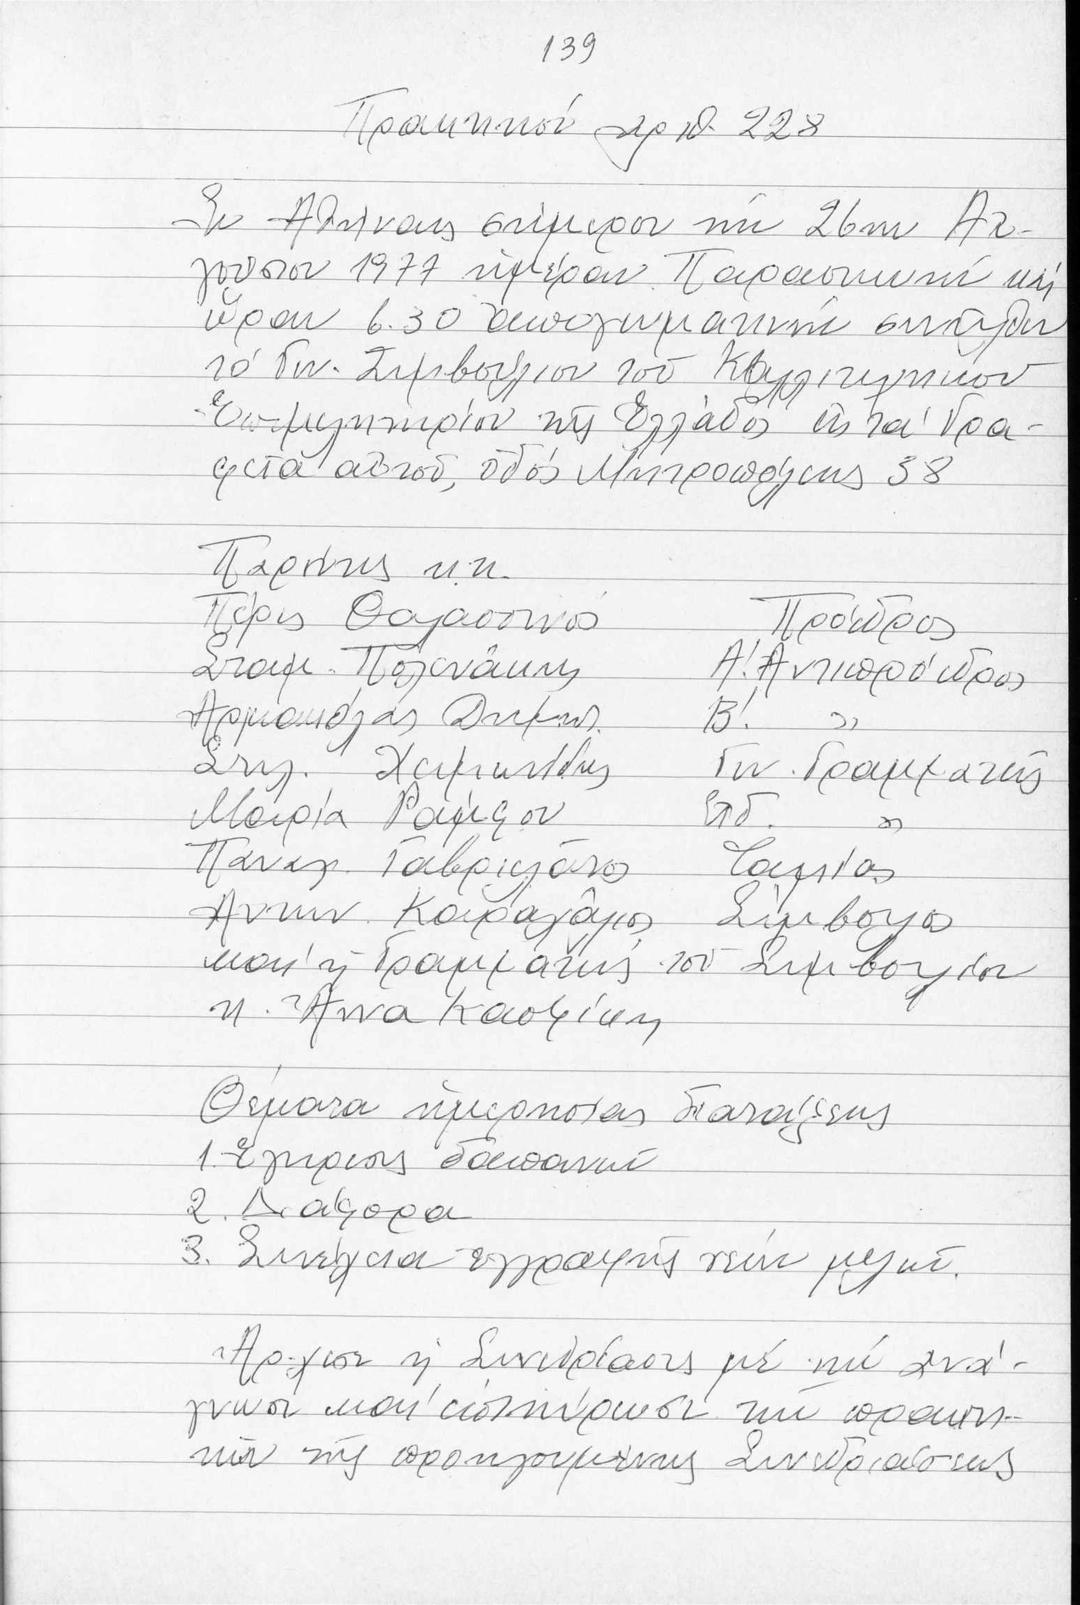 139
Πρακτικόν ἀριθ. 228
Ἐν Ἀθήναις σήμερον τήν 26ην Αὐ-
γούστου 1977 ἡμέραν Παρασκευή καί
ὥραν 6.30 ἀπογευματινήν συνῆλθεν
τό Γεν. Συμβούλιον τοῦ Καλλιτεχνικοῦ
Ἐπιμελητηρίου τῆς Ἑλλάδος εἰς τά Γρα-
φεῖα αὐτοῦ, ὁδός Μητροπόλεως 38
Παρόντες κ.κ.
Πέρις Θαλασσινός Πρόεδρος
Σταμ. Πολενάκης Α΄. Ἀντιπρόεδρος
Ἀρμακόλας Δημητ. Β΄. 〃
Στυλ. Χαιμωνίδης Γεν. Γραμματεύς
Μαρία Ράμφου Εἰδ. 〃
Παναγ. Γαβρηλᾶτος Ταμίας
Ἀντων. Καραχάλιος Σύμβουλος
καί ἡ Γραμματεύς τοῦ Συμβουλίου
κ. Ἄννα Κασφίκη
Θέματα ἡμερησίας διατάξεως
1. Ἔγκρισις δαπανῶν
2. Διάφορα
3. Συνέχεια ἐγγραφῆς νέων μελῶν.
Ἄρχισε ἡ Συνεδρίασις μέ τήν ἀνά-
γνωσι καί ἐπικύρωσι τῶν πρακτι-
κῶν τῆς προηγουμένης Συνεδριάσεως